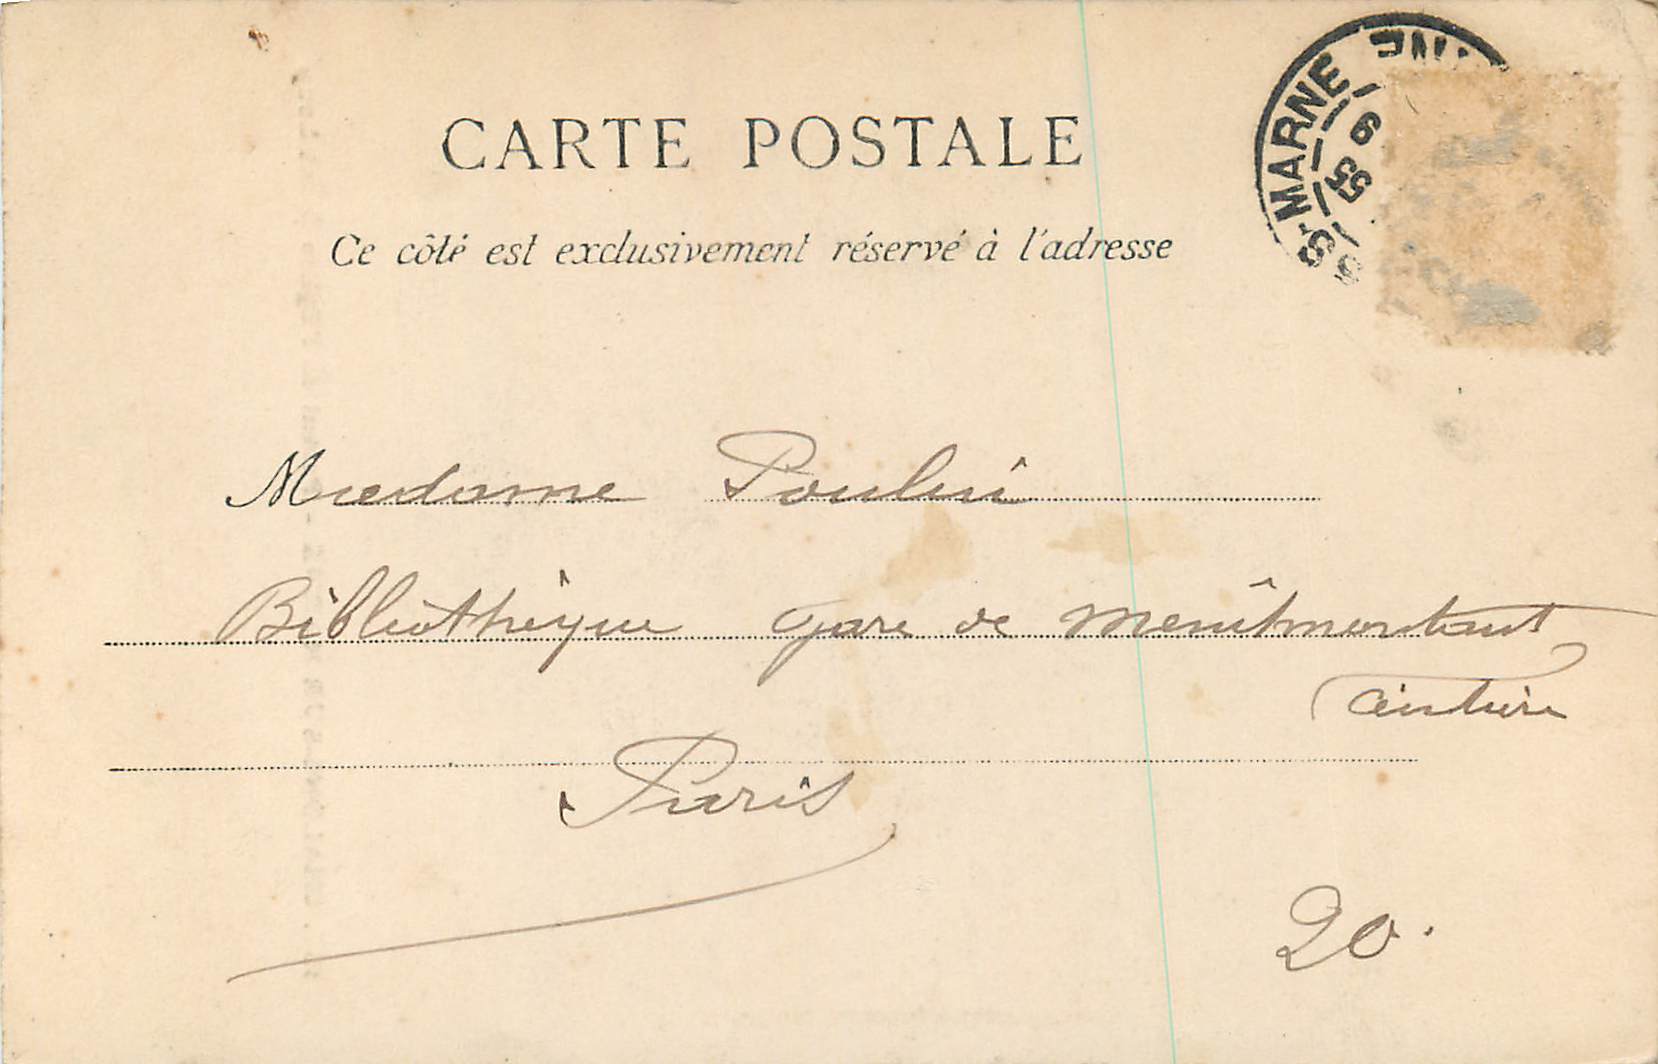 CARTE POSTALE
Ce côté est exclusivement réservé à l'adresse
Sᵗ MARNE
6 55
Madame Poulin
Bibliothèque gare de Menilmontant
Ceinture
Paris
20.